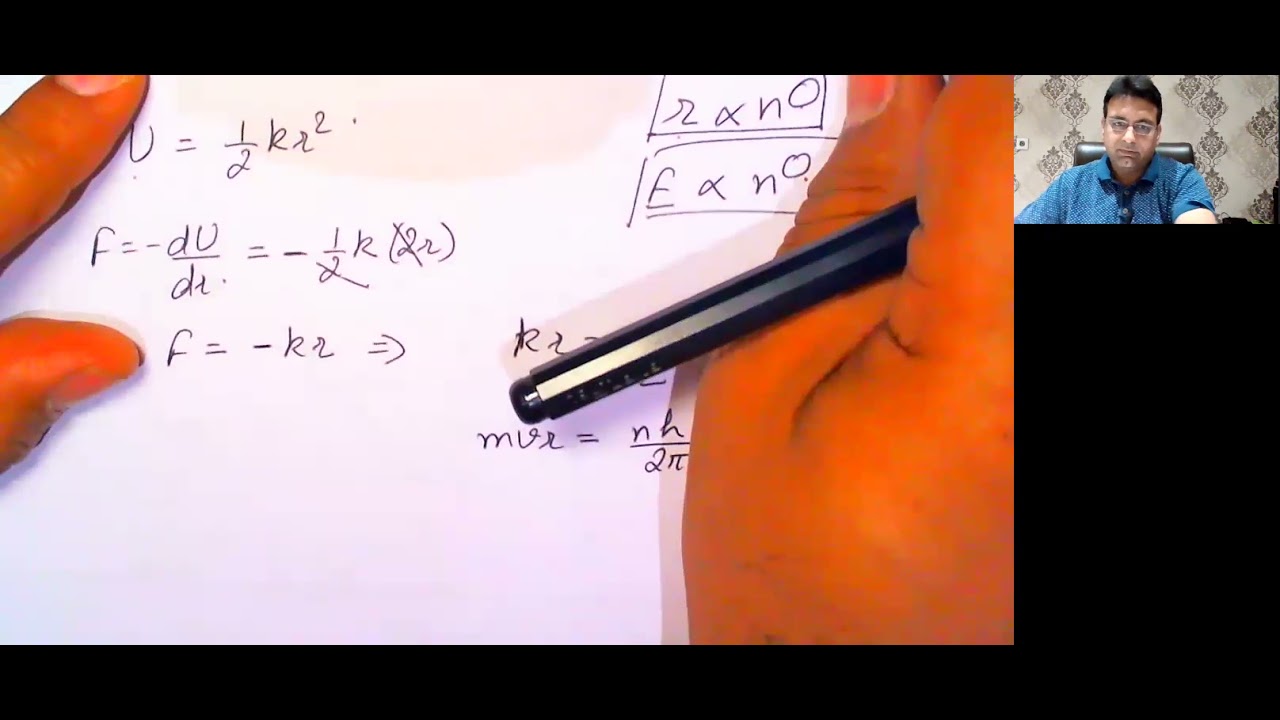 U = 1/2 kr²
r ∝ n○
E ∝ n○
F = -dU/dr = -1/2 k(2r)
F = -kr ⇒ kr =
mvr = nh/2π